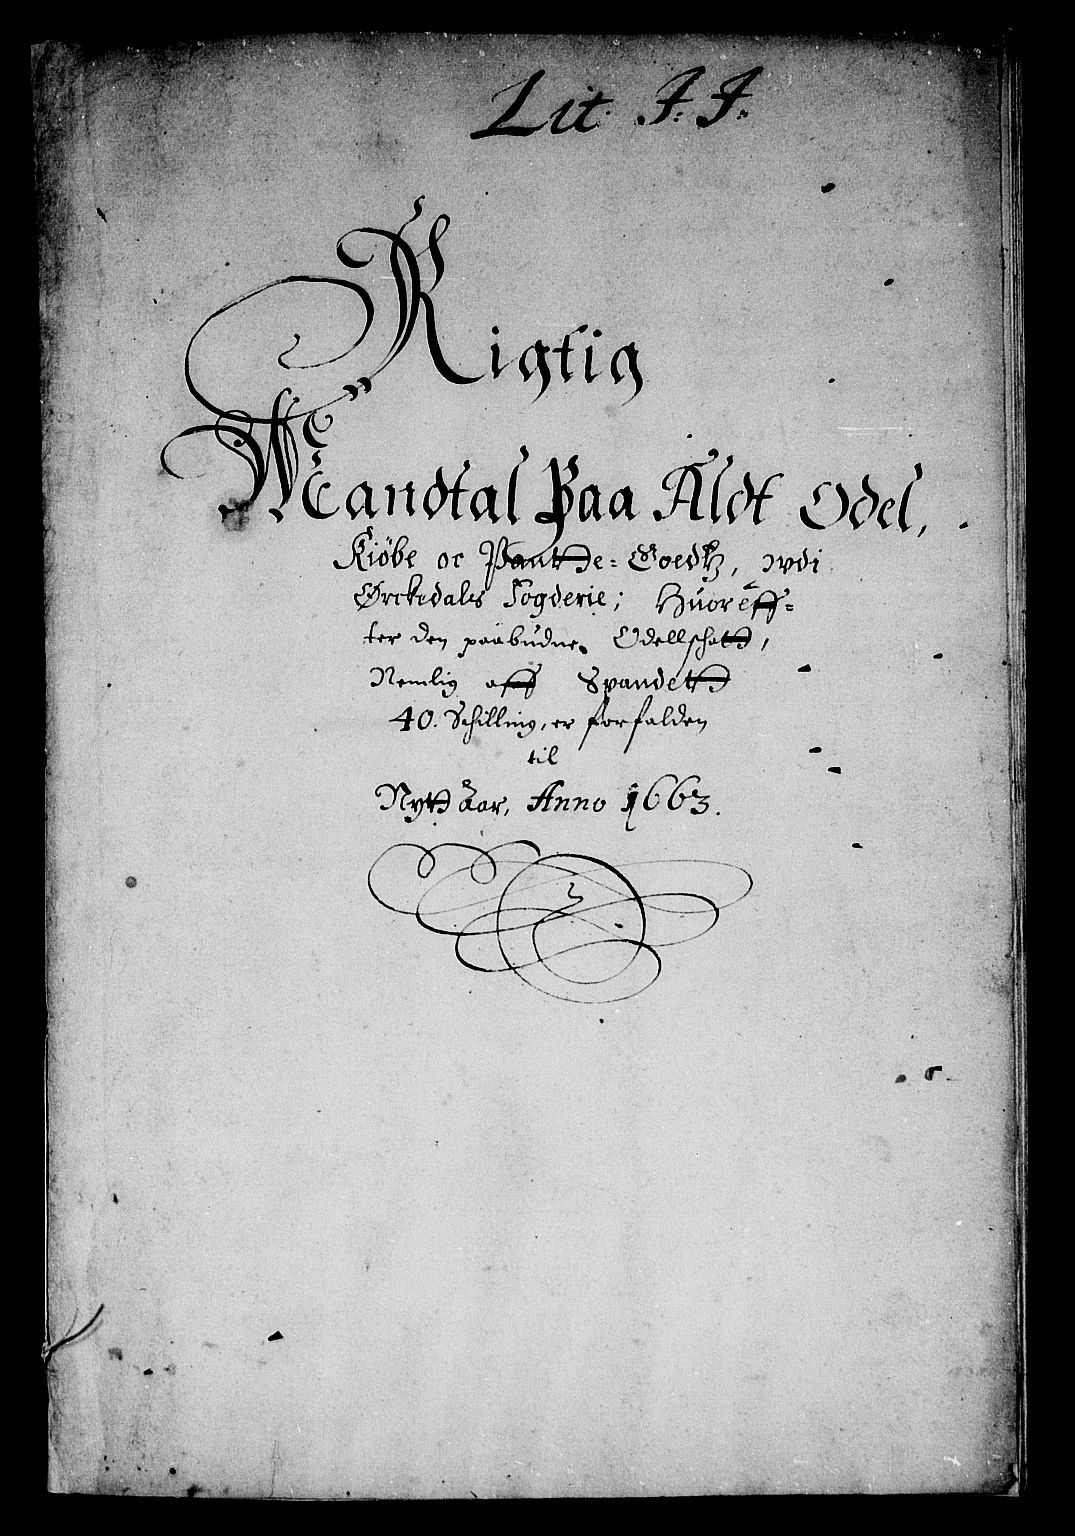 Lit. J: J:
Rigtig
Mandtal Paa Aldt Odel,
Kiøbe oc Pantte-Goedtz, wdi
Ørckedals Fogderie; Huoreff=
ter den paabudne Odellschatt,
Nemlig aff Spandett
40. Schilling, er forfalden
til
Nytt Aar, Anno 1663.